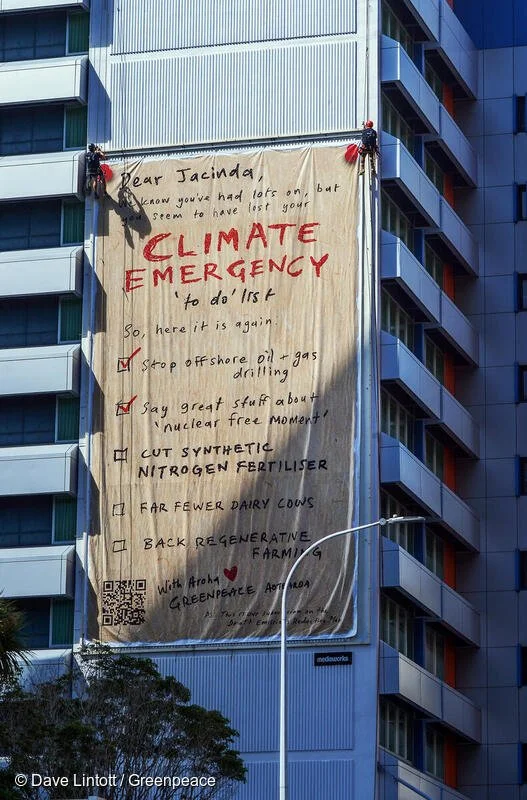 Dear Jacinda,
We know you've had lots on, but
you seem to have lost your
CLIMATE
EMERGENCY
'to do' list
So, here it is again.
Stop offshore oil + gas
drilling
Say great stuff about
'nuclear free moment'
CUT SYNTHETIC
NITROGEN FERTILISER
FAR FEWER DAIRY COWS
BACK REGENERATIVE
FARMING
With Aroha
GREENPEACE AOTEAROA
PS. This is our submission on the
Draft Emissions Reduction Plan
mediaworks
© Dave Lintott / Greenpeace